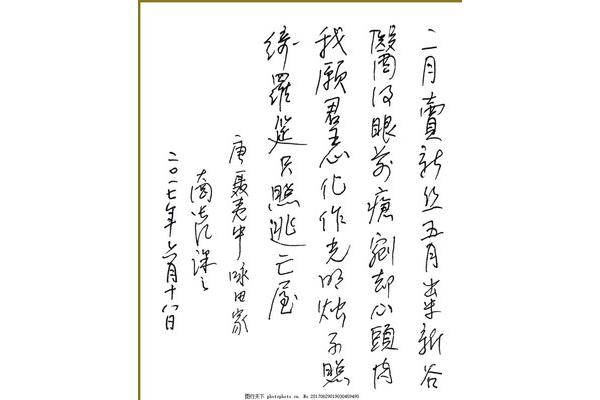 二月賣新丝五月粜新谷
醫得眼前瘡剜却心頭肉
我願君王心化作光明烛不照
綺羅筵只照逃亡屋
唐聂夷中咏田家
二〇一七年六月十八日
图行天下 photophoto.cn No.20170629019030459495